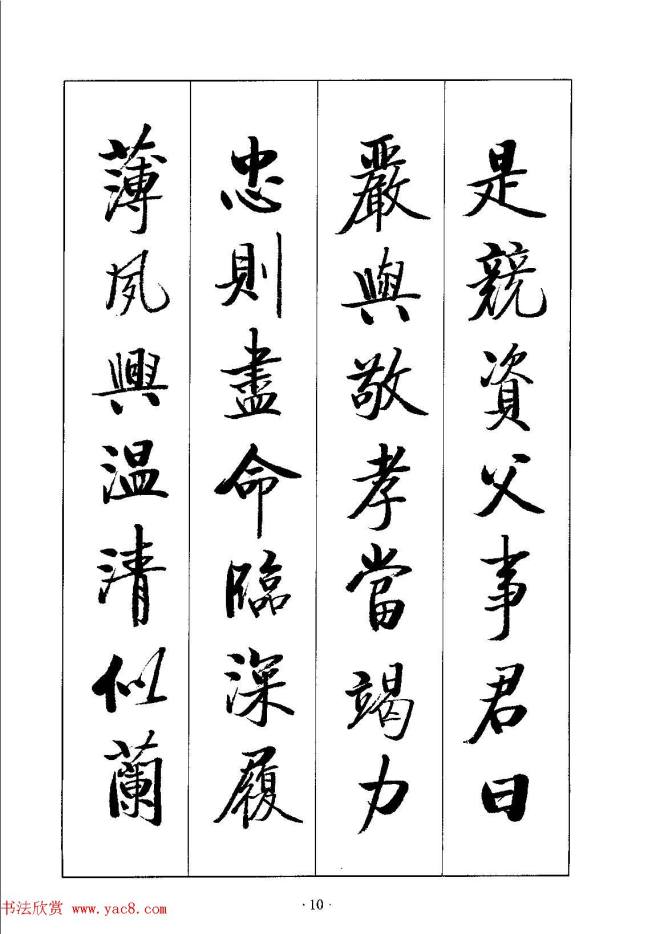 是競資父事君曰
嚴與敬孝當竭力
忠則盡命臨深履
薄夙興温清似蘭
· 10 ·
书法欣赏 www.yac8.com